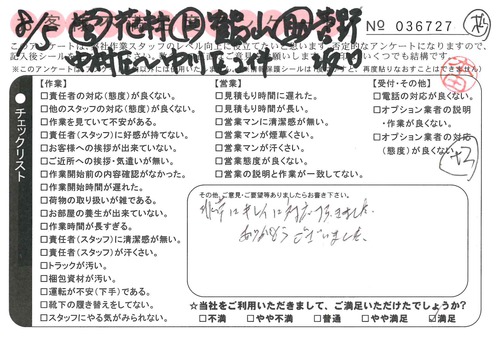 8/5 花村 鶴山 吉野
№ 036727
中村区→中川区 2件 坂口
このアンケートは、弊社作業スタッフのレベル向上に役立てたいと思います。否定的なアンケートになりますので、
【作業】
□責任者の対応(態度)が良くない。
□他のスタッフの対応(態度)が良くない。
□作業を見ていて不安がある。
□責任者(スタッフ)に好感が持てない。
□お客様への挨拶が出来ていない。
□ご近所への挨拶・気遣いが無い。
□作業開始前の内容確認がなかった。
□作業開始時間が遅れた。
□荷物の取り扱いが雑である。
□お部屋の養生が出来ていない。
□作業時間が長すぎる。
□責任者(スタッフ)に清潔感が無い。
□責任者(スタッフ)が汗くさい。
□トラックが汚い。
□梱包資材が汚い。
□運転が不安(下手)である。
□靴下の履き替えをしてない。
□スタッフにやる気がみられない。
【営業】
□見積もり時間に遅れた。
□見積もり時間が長い。
□営業マンに清潔感が無い。
□営業マンが煙草くさい。
□営業マンが汗くさい。
□営業態度が良くない。
□営業の説明と作業が一致してない。
【受付・その他】
□電話の対応が良くない。
□オプション業者の説明
・作業が良くない。
□オプション業者の対応
(態度)が良くない。
チェックリスト
その他、ご意見・ご要望等ありましたらお書き下さい。
非常にキレイに対応頂きました。
ありがとうございました。
☆当社をご利用いただきまして、ご満足いただけたでしょうか?
□不満 □やや不満 □普通 □やや満足 ☑満足